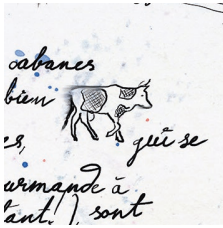 cabanes
bien
es,
qui se
urmande à
tant!), sont